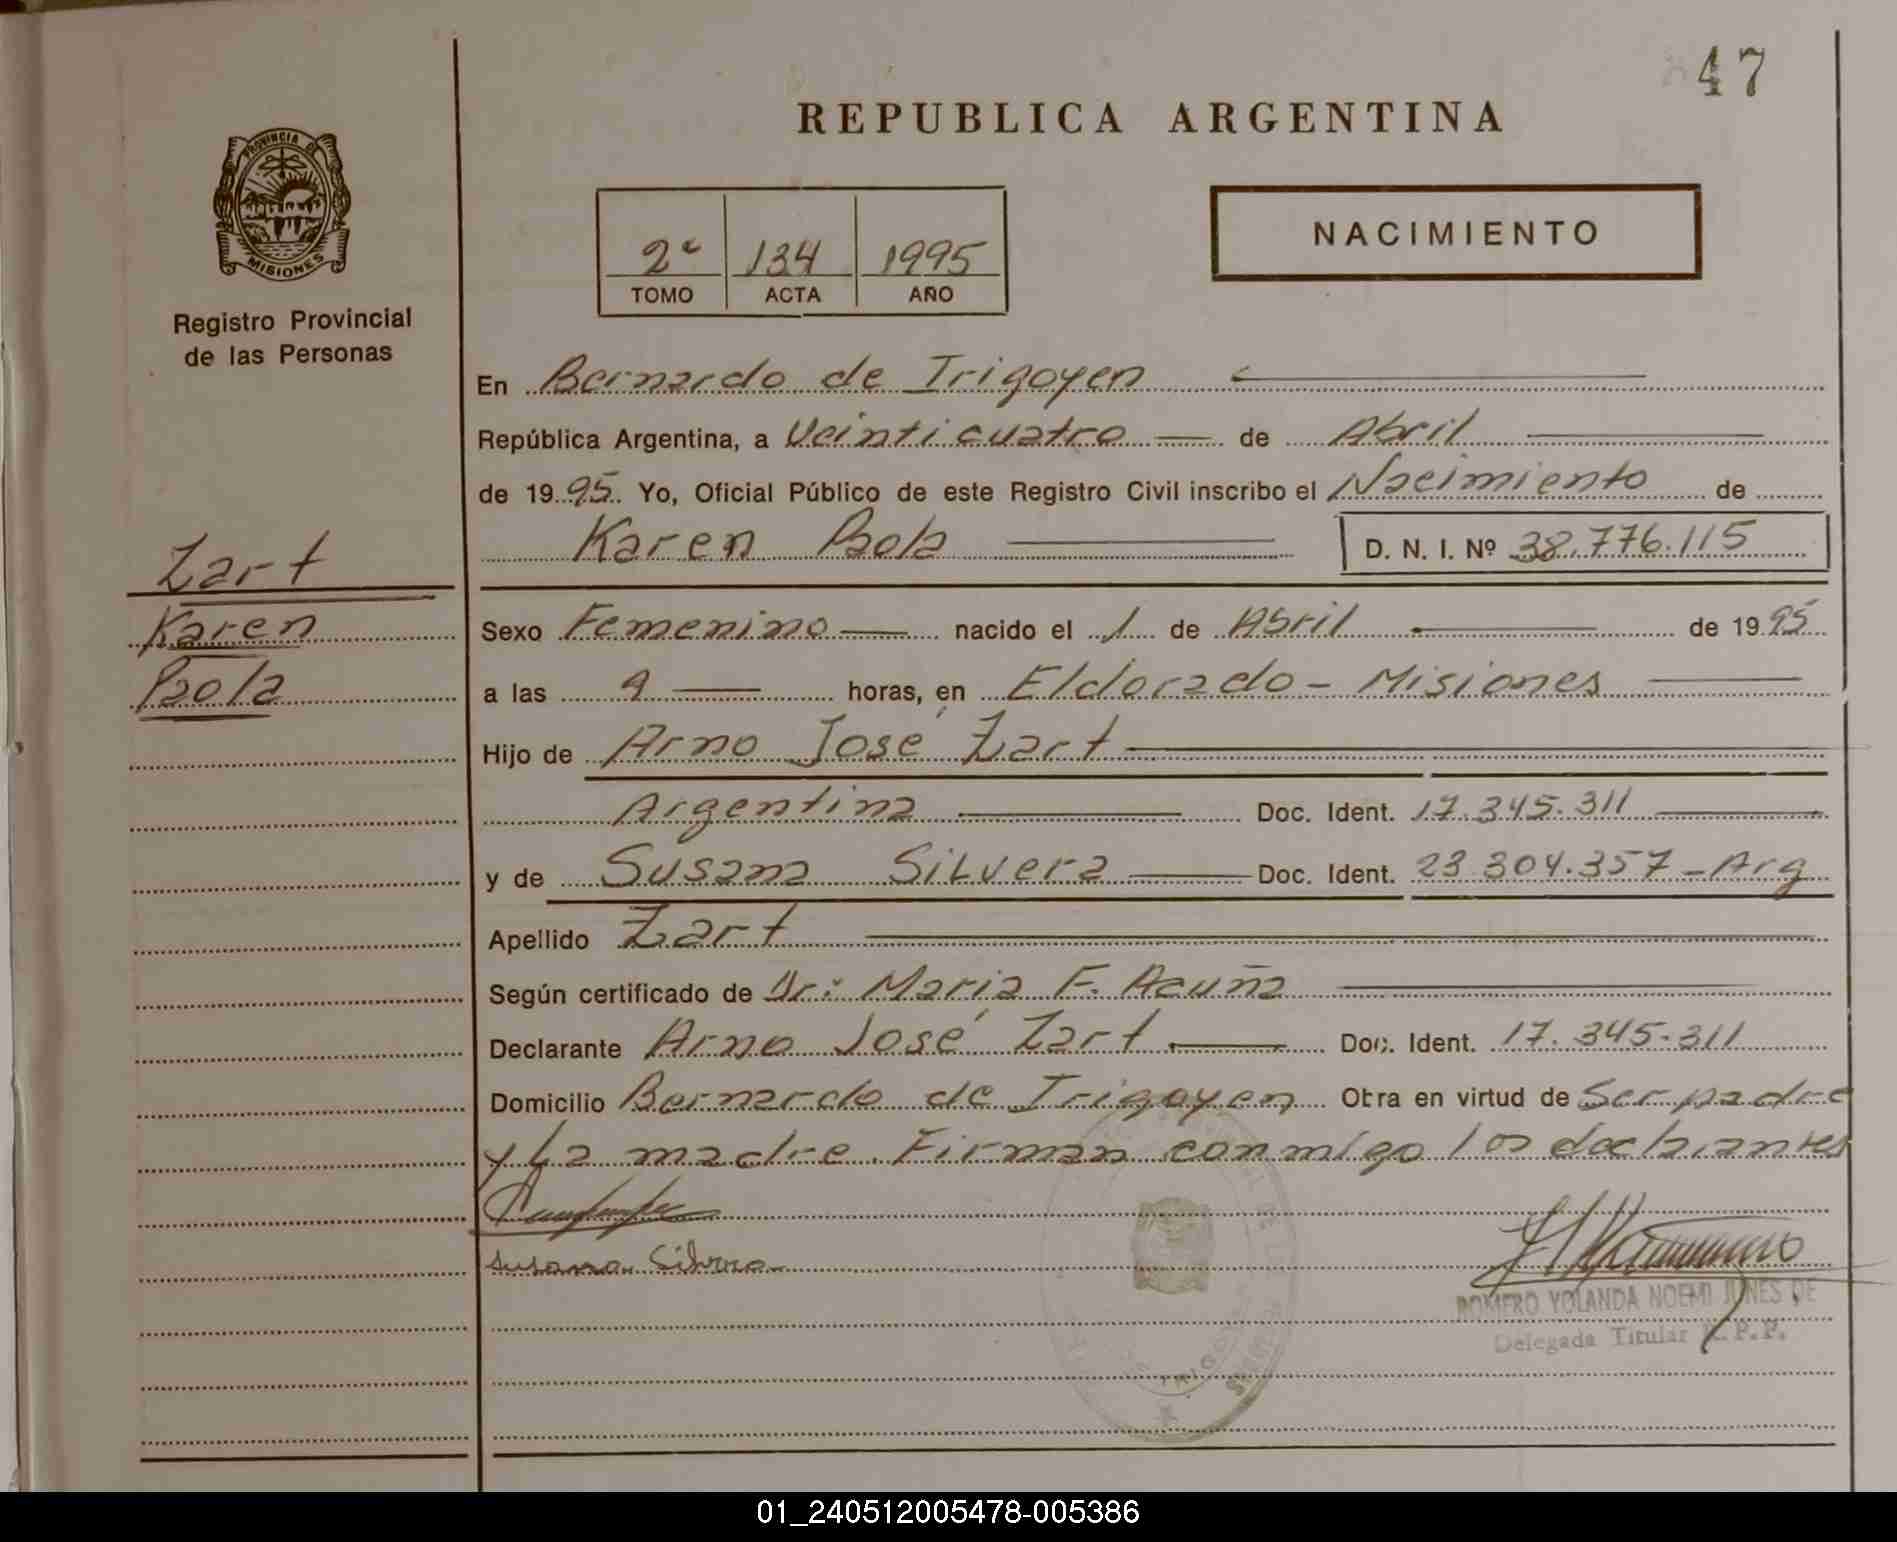 47
REPUBLICA ARGENTINA
PROVINCIA DE
MISIONES
Registro Provincial
de las Personas
2º 134 1995
TOMO ACTA AÑO
NACIMIENTO
En Bernardo de Irigoyen
República Argentina, a Veinticuatro de Abril
de 1995 Yo, Oficial Público de este Registro Civil inscribo el Nacimiento de
Karen Paola D. N. I. Nº 38.776.115
Zart
Karen
Paola
Sexo Femenino nacido el 1 de Abril de 1995
a las 9 horas, en Eldorado - Misiones
Hijo de Arno José Zart
Argentina Doc. Ident. 17.345.311
y de Susana Silvera Doc. Ident. 23.304.357 - Arg
Apellido Zart
Según certificado de Dr: Maria F. Acuña
Declarante Arno José Zart Doc. Ident. 17.345.311
Domicilio Bernardo de Irigoyen Otra en virtud de Ser padre
y La madre. Firman conmigo los declarantes
Susana Silvera
ROMERO YOLANDA NOEMI JUNES DE
Delegada Titular R. P. P.
01_240512005478-005386